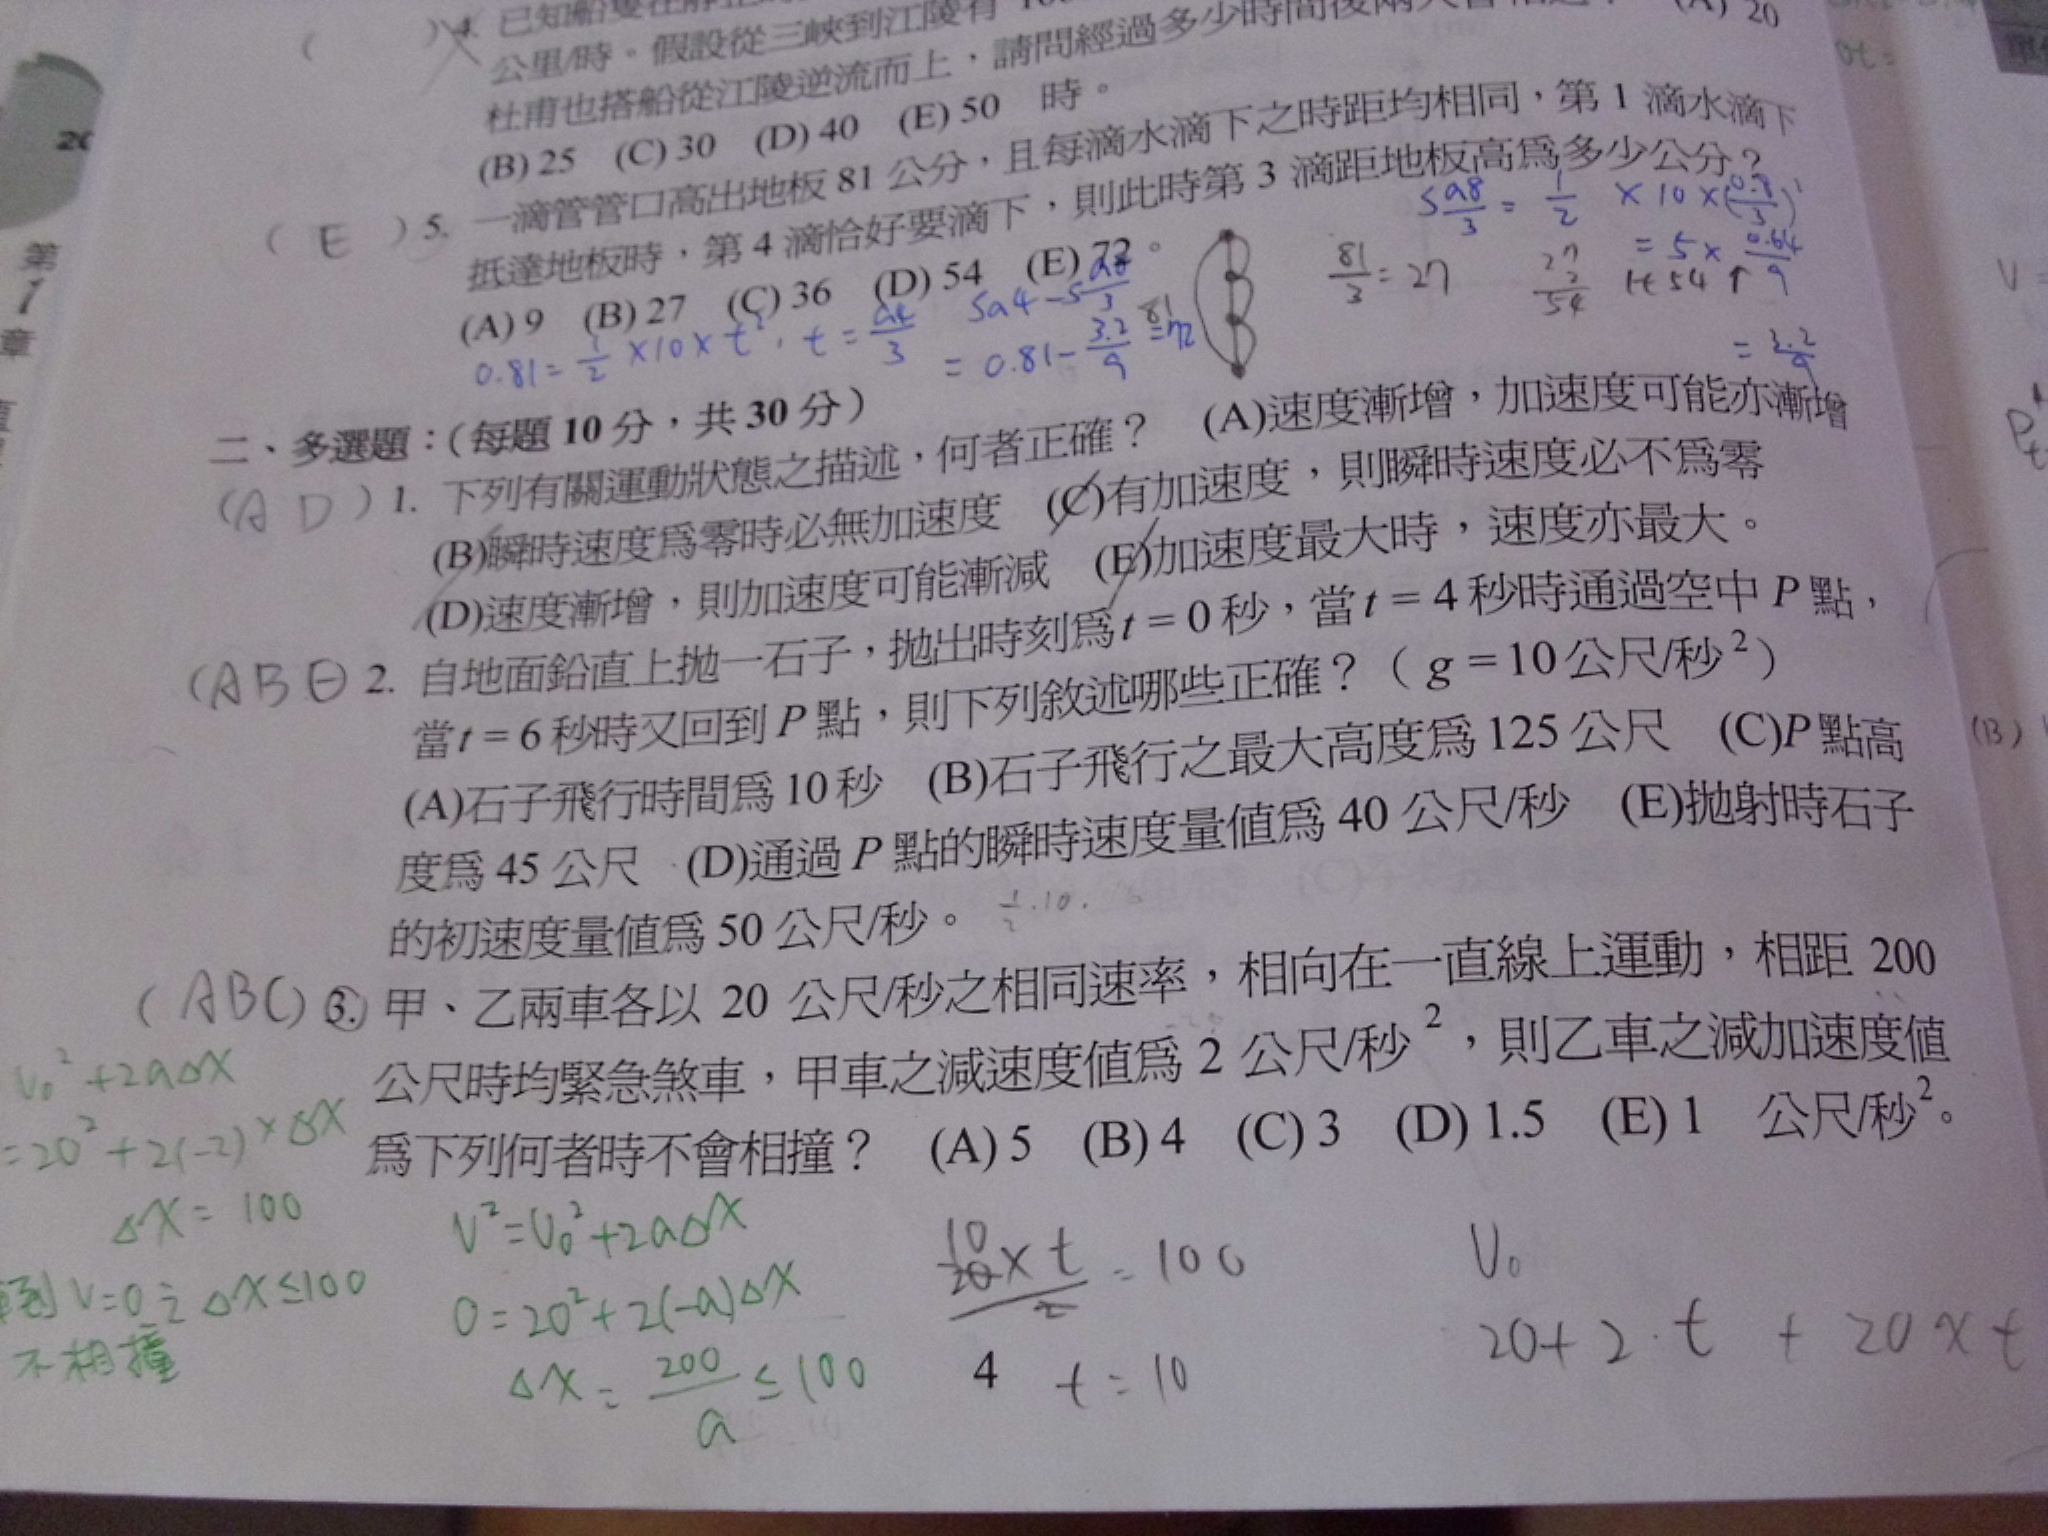 ( ) 4. 已知船隻在靜止
公里/時。假設從三峽到江陵有 100
杜甫也搭船從江陵逆流而上，請問經過多少時間後兩人會相遇？ (A) 20
(B) 25 (C) 30 (D) 40 (E) 50 時。
( E ) 5. 一滴管管口高出地板 81 公分，且每滴水滴下之時距均相同，第 1 滴水滴下
抵達地板時，第 4 滴恰好要滴下，則此時第 3 滴距地板高為多少公分？
(A) 9 (B) 27 (C) 36 (D) 54 (E) 72。
81/3 = 27
27
2
54
81
二、多選題：(每題 10 分，共 30 分)
(A D) 1. 下列有關運動狀態之描述，何者正確？ (A)速度漸增，加速度可能亦漸增
(B)瞬時速度為零時必無加速度 (C)有加速度，則瞬時速度必不為零
(D)速度漸增，則加速度可能漸減 (E)加速度最大時，速度亦最大。
(A B E) 2. 自地面鉛直上拋一石子，拋出時刻為 t = 0 秒，當 t = 4 秒時通過空中 P 點，
當 t = 6 秒時又回到 P 點，則下列敘述哪些正確？ ( g = 10 公尺/秒² )
(A)石子飛行時間為 10 秒 (B)石子飛行之最大高度為 125 公尺 (C)P 點高
度為 45 公尺 (D)通過 P 點的瞬時速度量值為 40 公尺/秒 (E)拋射時石子
的初速度量值為 50 公尺/秒。
(ABC) 3. 甲、乙兩車各以 20 公尺/秒之相同速率，相向在一直線上運動，相距 200
公尺時均緊急煞車，甲車之減速度值為 2 公尺/秒²，則乙車之減加速度值
為下列何者時不會相撞？ (A) 5 (B) 4 (C) 3 (D) 1.5 (E) 1 公尺/秒²。
V₀² + 2aΔX
= 20² + 2(-2) × ΔX
ΔX = 100
到 V=0 ΔX ≤ 100
不相撞
V² = V₀² + 2aΔX
0 = 20² + 2(-a)ΔX
ΔX = 200/a ≤ 100
= 100
4 t = 10
V₀
20 + 2·t + 20 × t
第
1
章